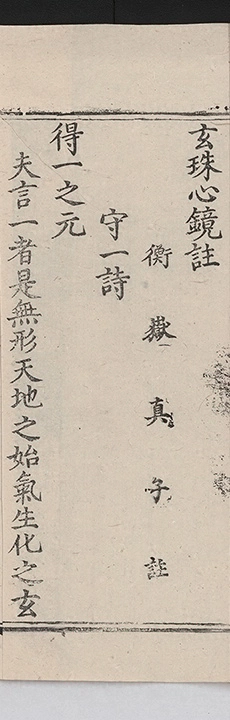 玄珠心鏡註
衡嶽真子註
守一詩
得一之元
夫言一者是無形天地之始氣生化之玄